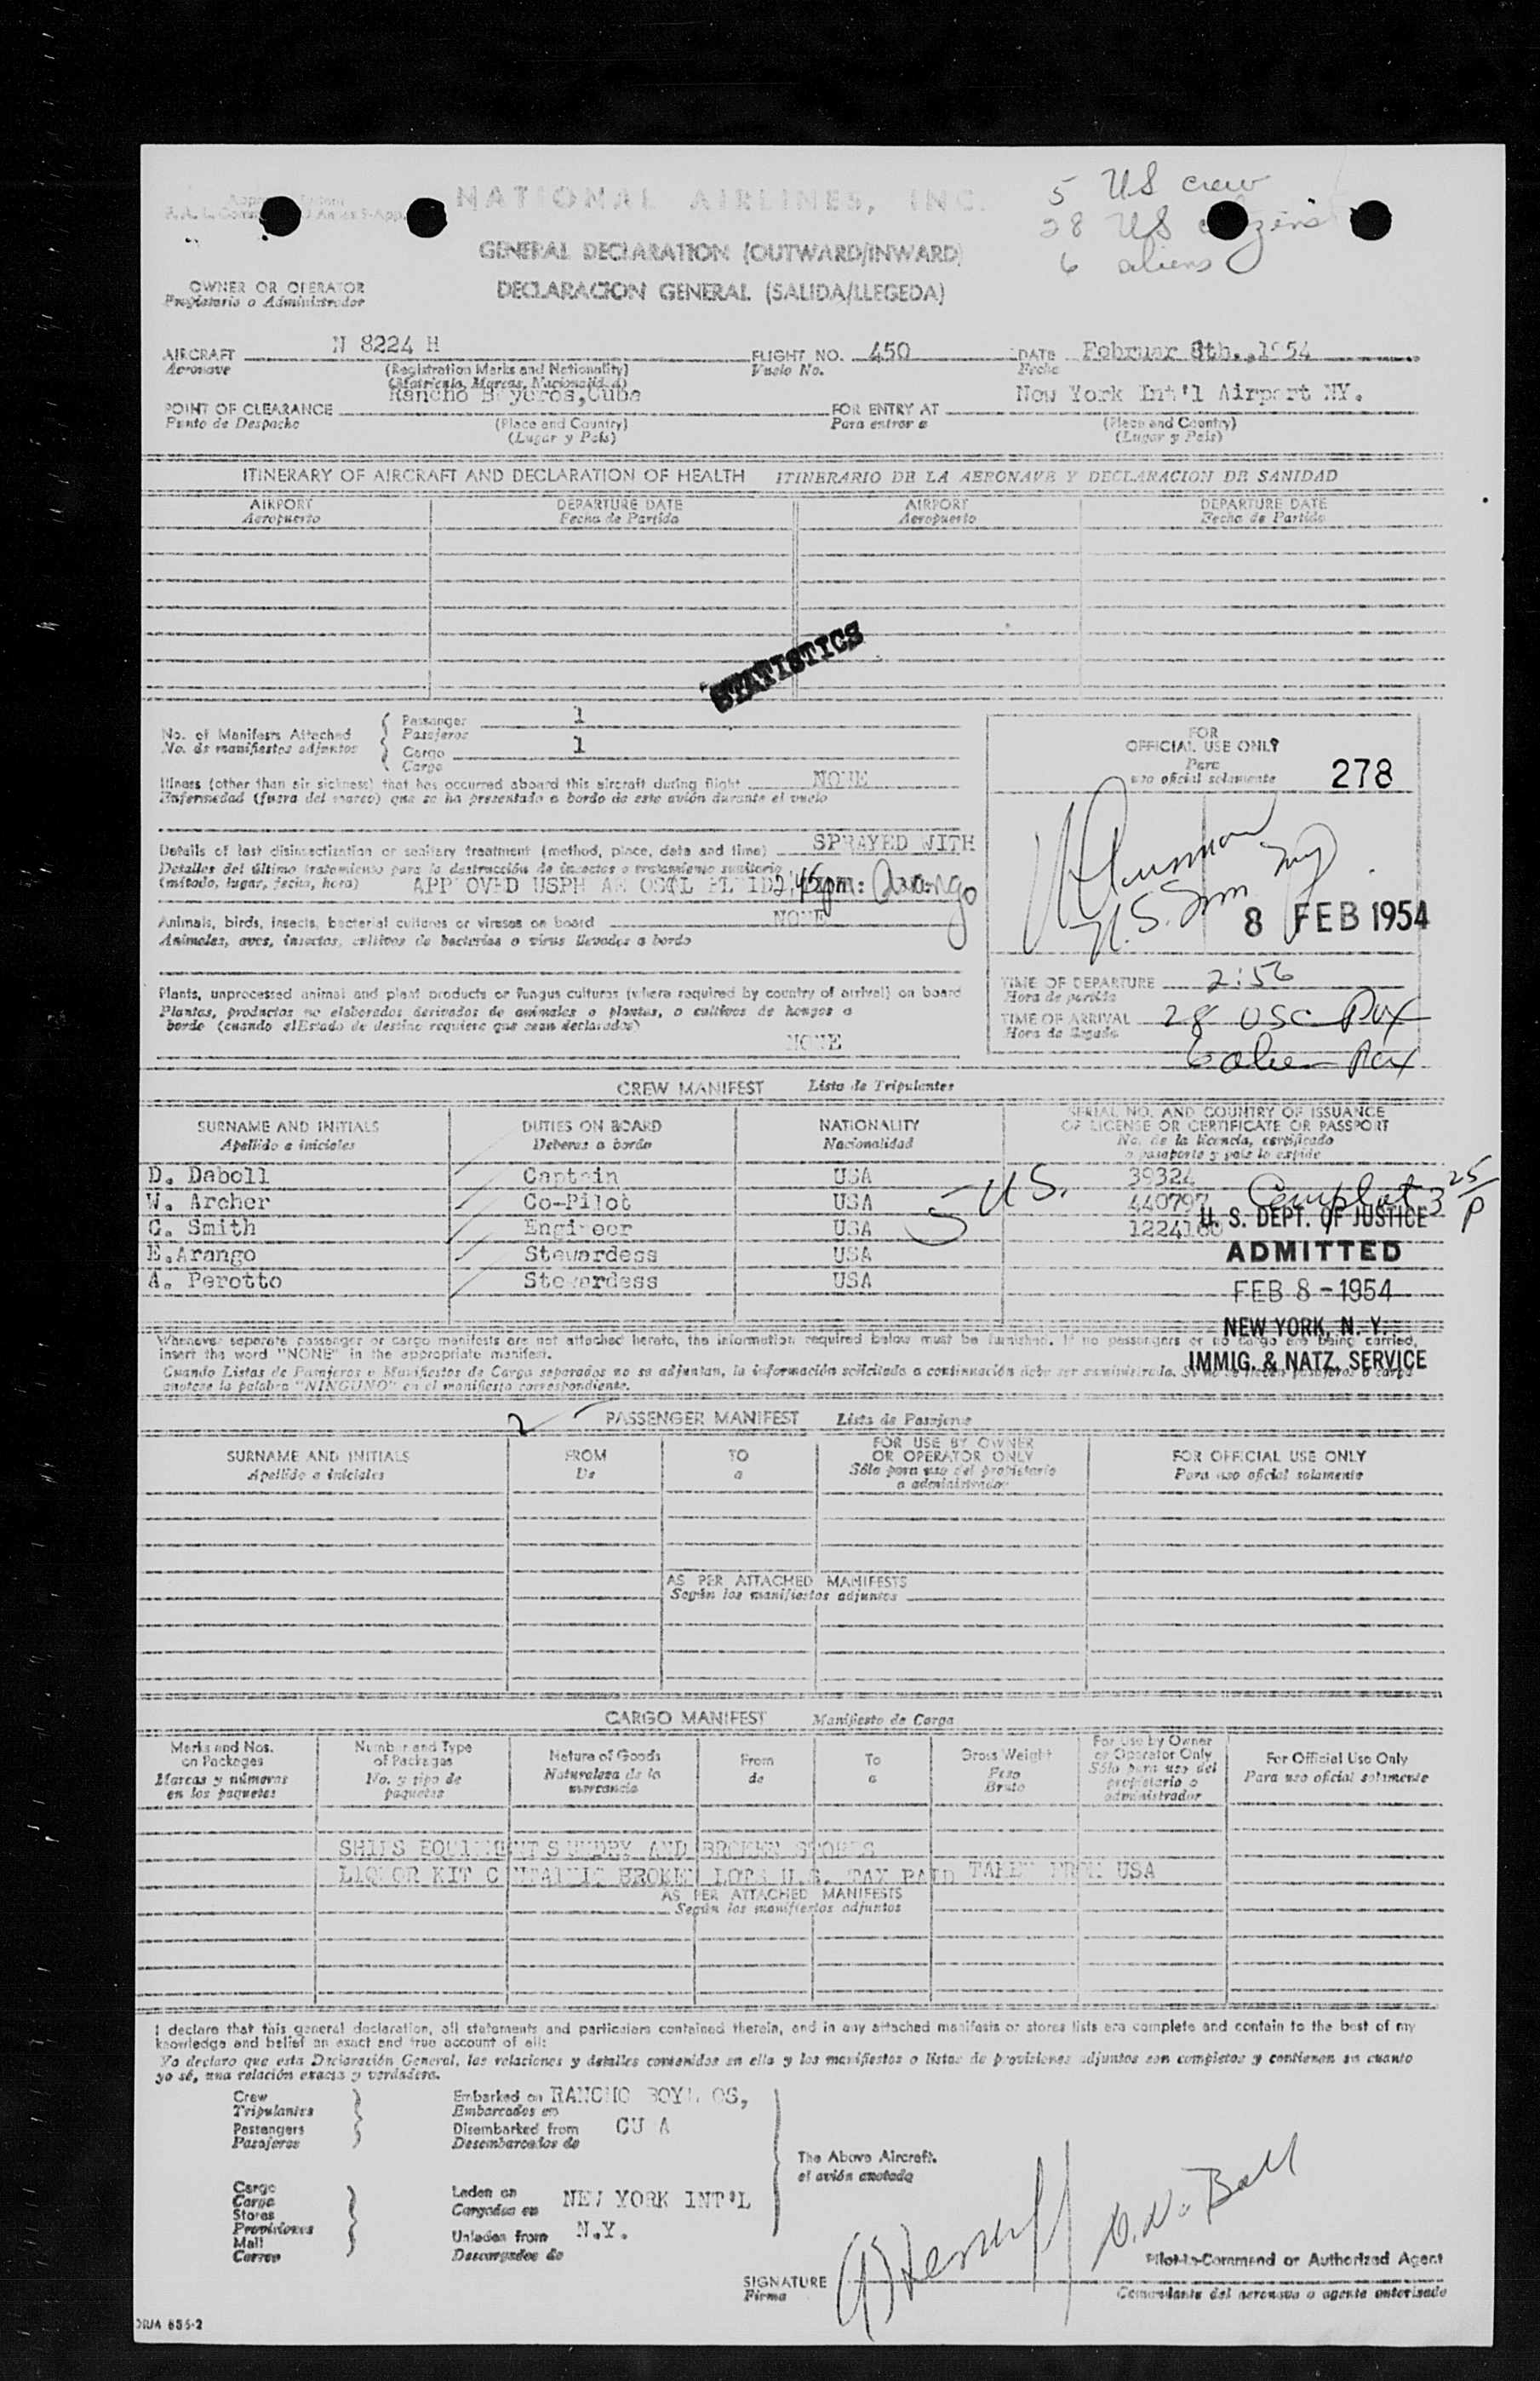 NATIONAL AIRLINES, INC.
5 US crew
28 US citizens
6 aliens
GENERAL DECLARATION (OUTWARD/INWARD)
DECLARACION GENERAL (SALIDA/LLEGEDA)
OWNER OR OPERATOR
Propietario o Administrador
AIRCRAFT N 8224 H FLIGHT NO. 450 DATE Februar 8th.,1954
Aeronave (Registration Marks and Nationality) Vuelo No. Fecha
(Matricula, Marcas, Nacionalidad)
Rancho Boyeros,Cuba New York Int'l Airport NY.
POINT OF CLEARANCE FOR ENTRY AT
Punto de Despacho (Place and Country) Para entrar a (Place and Country)
(Lugar y País) (Lugar y País)
ITINERARY OF AIRCRAFT AND DECLARATION OF HEALTH ITINERARIO DE LA AERONAVE Y DECLARACION DE SANIDAD
AIRPORT DEPARTURE DATE AIRPORT DEPARTURE DATE
Aeropuerto Fecha de Partida Aeropuerto Fecha de Partida
STATISTICS
No. of Manifests Attached Passenger 1
No. de manifiestos adjuntos Pasajeros
Cargo 1
Cargo
FOR
OFFICIAL USE ONLY
Para
uso oficial solamente
278
Illness (other than air sickness) that has occurred aboard this aircraft during flight NONE
Enfermedad (fuera del mareo) que se ha presentado a bordo de este avión durante el vuelo
Details of last disinsectization or sanitary treatment (method, place, date and time) SPRAYED WITH
Detalles del último tratamiento para la destrucción de insectos o tratamiento sanitario
(método, lugar, fecha, hora) APP OVED USPH AE OSOL 2:45pm: Arango
Animals, birds, insects, bacterial cultures or viruses on board NONE
Animales, aves, insectos, cultivos de bacterias o virus llevados a bordo
8 FEB 1954
Plants, unprocessed animal and plant products or fungus cultures (where required by country of arrival) on board
Plantas, productos no elaborados derivados de animales o plantas, o cultivos de hongos a
bordo (cuando el Estado de destino requiere que sean declarados)
NONE
TIME OF DEPARTURE 2:56
Hora de partida
TIME OF ARRIVAL 28 USC Pax
Hora de llegada
6 alien Pax
CREW MANIFEST Lista de Tripulantes
SURNAME AND INITIALS DUTIES ON BOARD NATIONALITY SERIAL NO. AND COUNTRY OF ISSUANCE
OF LICENSE OR CERTIFICATE OR PASSPORT
Apellido e iniciales Deberes a bordo Nacionalidad No. de la licencia, certificado
o pasaporte y país lo expide
D. Daboll Captain USA 39324
W. Archer Co-Pilot USA 440797
G. Smith Engineer USA 1224160
E.Arango Stewardess USA
A. Perotto Stewardess USA
5 US.
3 25/P
U. S. DEPT. OF JUSTICE
ADMITTED
FEB 8 - 1954
NEW YORK, N. Y.
IMMIG. & NATZ. SERVICE
Whenever separate passenger or cargo manifests are not attached hereto, the information required below must be furnished. If no passengers or no cargo are being carried,
insert the word "NONE" in the appropriate manifest.
Cuando Listas de Pasajeros o Manifiestos de Carga separados no se adjuntan, la información solicitada a continuación debe ser suministrada. Si no se llevan pasajeros o carga
anotese la palabra "NINGUNO" en el manifiesto correspondiente.
2
PASSENGER MANIFEST Lista de Pasajeros
SURNAME AND INITIALS FROM TO FOR USE BY OWNER
OR OPERATOR ONLY FOR OFFICIAL USE ONLY
Apellido e iniciales De a Sólo para uso del propietario
o administrador Para uso oficial solamente
AS PER ATTACHED MANIFESTS
Según los manifiestos adjuntos
CARGO MANIFEST Manifiesto de Carga
Marks and Nos.
on Packages
Marcas y números
en los paquetes
Number and Type
of Packages
No. y tipo de
paquetes
Nature of Goods
Naturaleza de la
mercancia
From
de
To
a
Gross Weight
Peso
Bruto
For Use by Owner
or Operator Only
Sólo para uso del
propietario o
administrador
For Official Use Only
Para uso oficial solamente
SHIPS EQUIPMENT SUNDRY AND BROKEN STORES
LIQUOR KIT CONTAINIG BROKEN LOTS U.S. TAX PAID TAKEN FROM USA
AS PER ATTACHED MANIFESTS
Según los manifiestos adjuntos
I declare that this general declaration, all statements and particulars contained therein, and in any attached manifests or stores lists are complete and contain to the best of my
knowledge and belief an exact and true account of all:
Yo declaro que esta Declaración General, las relaciones y detalles contenidos en ella y los manifiestos o listas de provisiones adjuntos son completos y contienen en cuanto
yo sé, una relación exacta y verdadera.
Crew
Tripulantes
Passengers
Pasajeros
Embarked on RANCHO BOY OS,
Embarcados en
Disembarked from CU A
Desembarcados de
The Above Aircraft.
el avión anotado
Cargo
Carga
Stores
Provisiones
Mail
Correo
Laden on NEW YORK INT'L
Cargados en
Unladen from N.Y.
Descargados de
SIGNATURE
Firma
Pilot-in-Command or Authorized Agent
Comandante del aeronave o agente autorizado